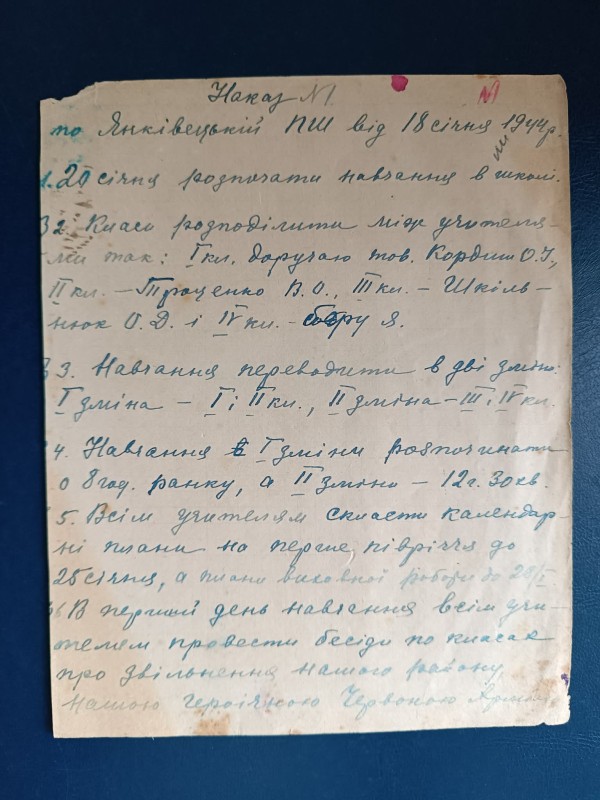 Наказ №1.
по Янківецькій ПШ від 18 січня 1944р.
1. 20 січня розпочати навчання в школі.
2. Класи розподілити між учителя-
ми так: I кл. доручаю тов. Кордиш О.І.,
II кл. – Троценко В.О., III кл. – Шкіль-
нюк О.Д. і IV кл. – беру я.
3. Навчання переводити в дві зміни:
I зміна – I і II кл., II зміна – III і IV кл.
4. Навчання I зміни розпочинати
о 8 год. ранку, а II зміни – 12 г. 30 хв.
5. Всім учителям скласти календар-
ні плани на перше півріччя до
25 січня, а плани виховної роботи до 28/I
6 В перший день навчання всім учи-
телям провести бесіди по класах
про звільнення нашого району,
нашою героїчною Червоною Армією.